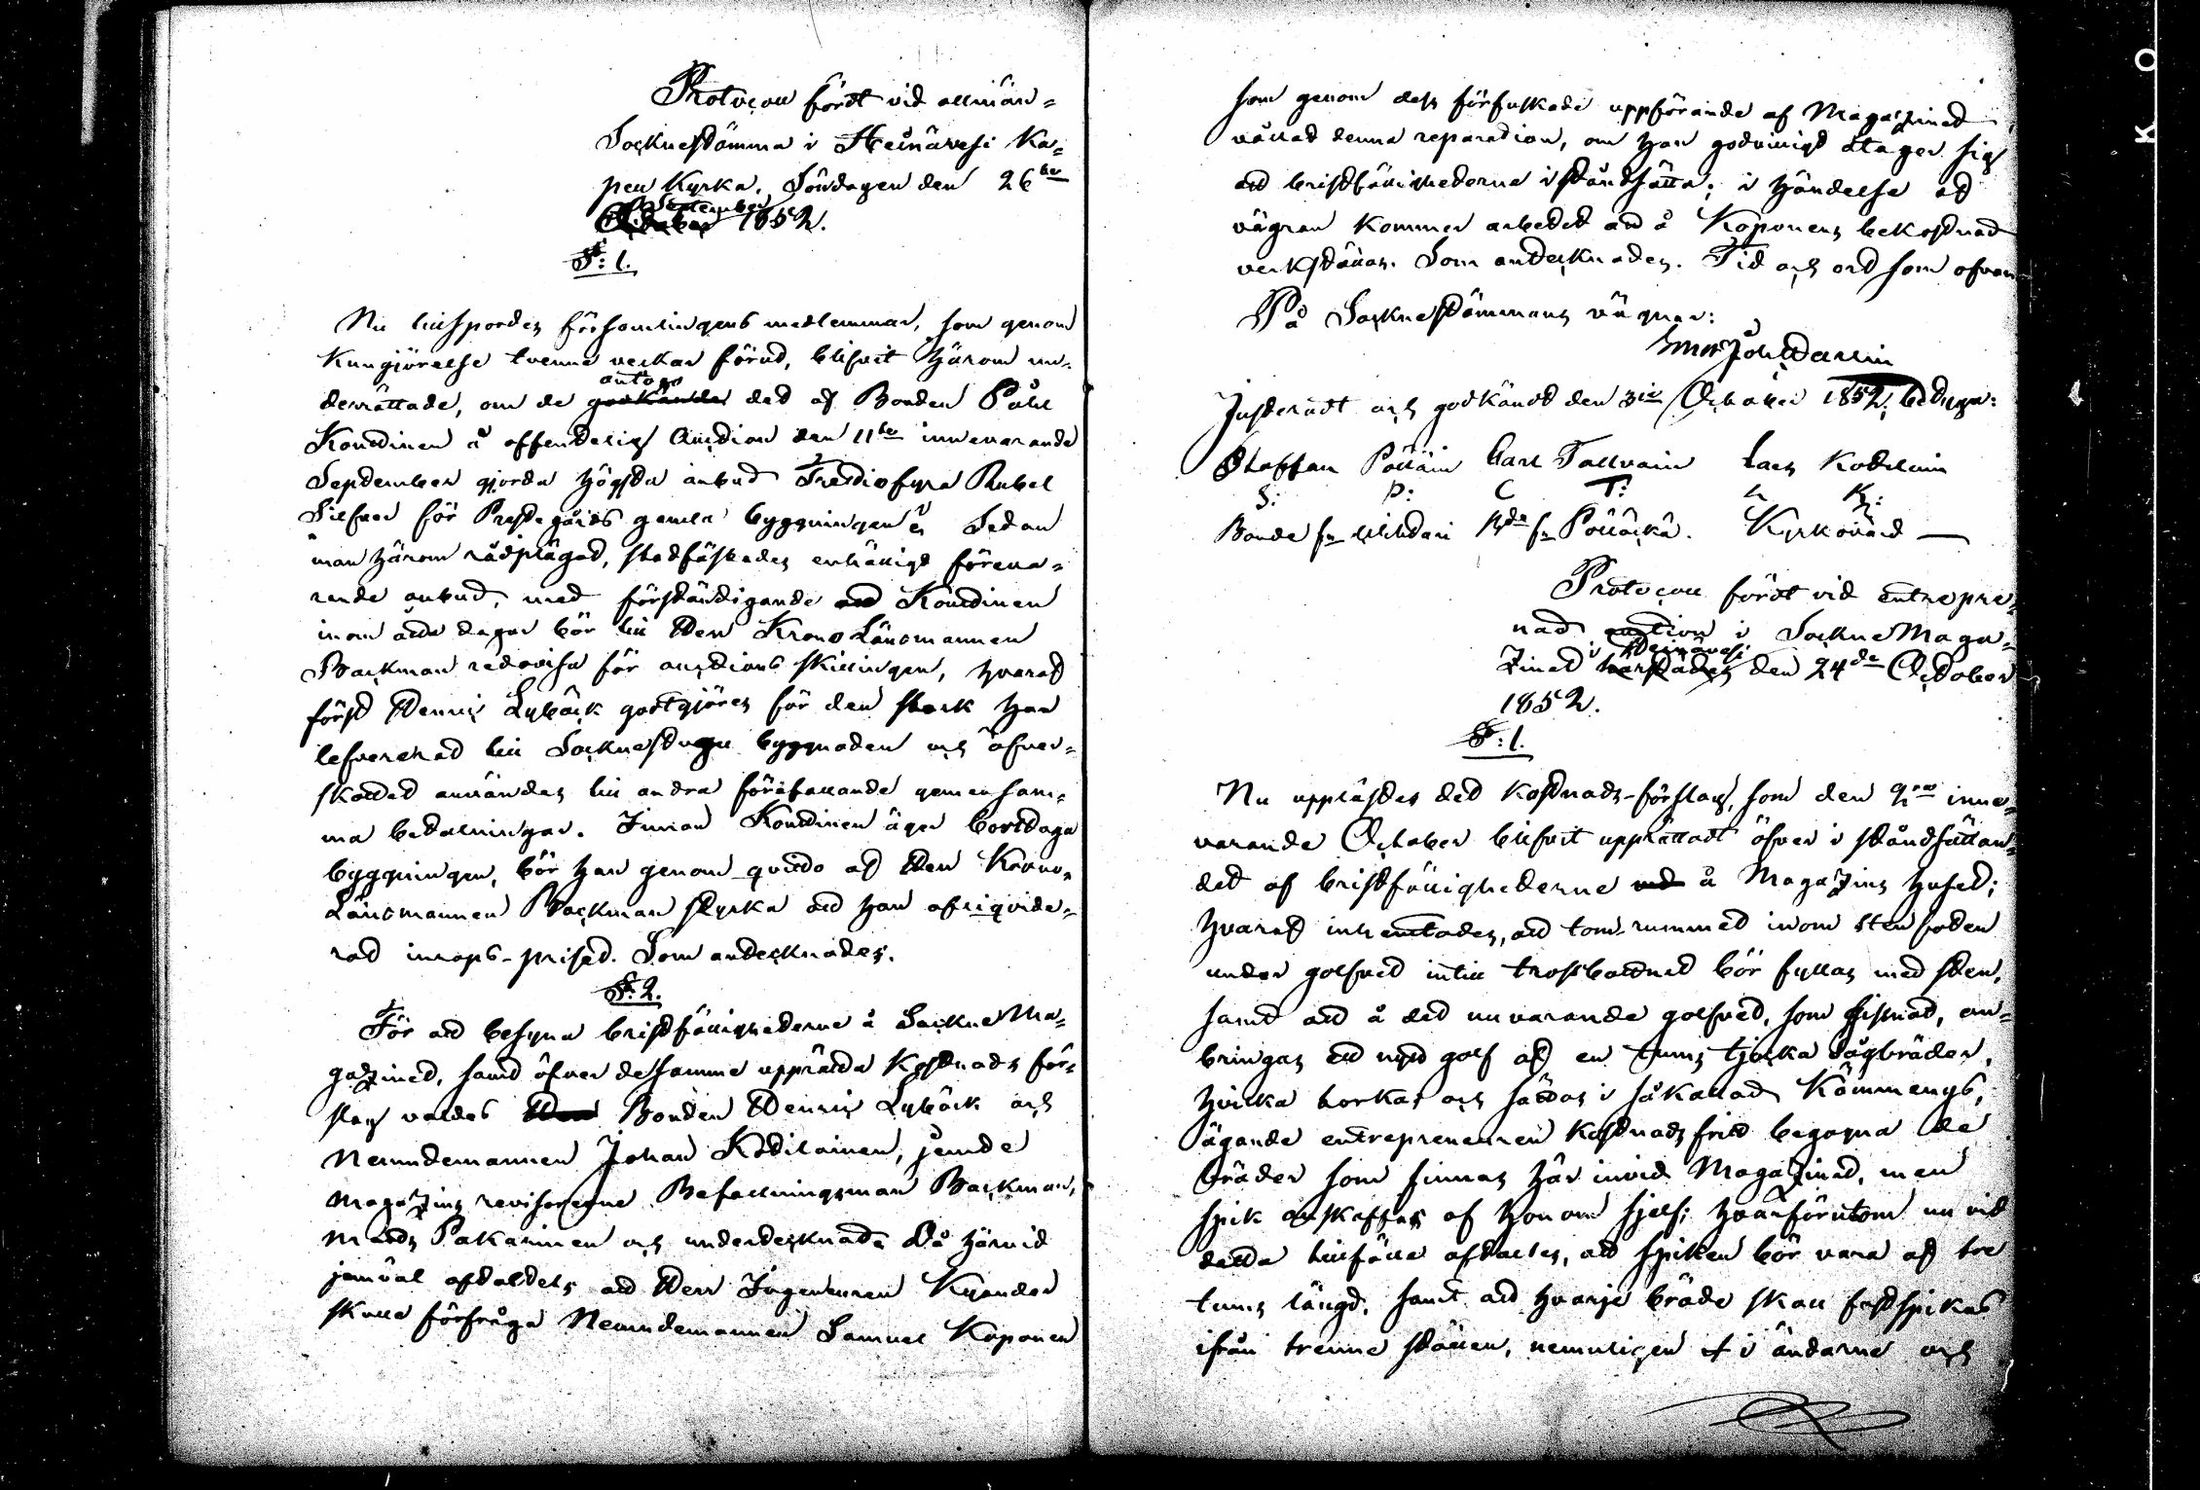 Protocoll fördt vid allmän=
Socknestämma i Heinävesi Ka=
pell Kyrka, Söndagen den 26te
September
October 1852.
§: 1.
Nu tillspordes församlingens medlemmar, som genom
Kungjörelse tvenne veckor förut, blifvit härom un=
antaga
derrättade, om de godkände det af Bonden Påhl
Konttinen å offentelig Auction den 11te innevarande
September gjorda högsta anbud Trettiofyra Rubel
Silfver för Prestegårds gamla byggningen? Sedan
man härom rådplägat, stadfästades enhälligt föreva=
rande anbud, med förständigande att Konttinen
inom åtta dagar bör till Herr Krono Länsmannen
Backman redovisa för auctions skillingen, hvaraf
först Henric Lybäck godtgöres för den stock han
lefvererat till Socknestugu byggnaden och öfver=
skottet användes till andra förefallande gemensam=
ma betalningar. Innan Konttinen äger borttaga
byggningen, bör han genom qvitto af Herr Krono-
Länsmannen Backman styrka att han afliqvide=
rat inrops-priset. Som antecknades.
§: 2.
För att besyna bristfälligheterne å Sockne Ma=
gazinet, samt öfver desamme upprätta Kostnads för=
slag valdes Herr Bonden Henric Lybäck och
Nemndemannen Johan Kotilainen, jemte
Magazins revisorerne Befallningsman Backman,
Matts Pakarinen och undertecknad. Då härvid
jemväl aftaltes att Herr Ingenieuren Kyander
skulle förfråga Nemndemannen Samuel Koponen
som genom dess förfuskade uppförande af Magazinet
vållat denna reparation, om han godvilligt åtager sig
att bristfälligheterna iståndsätta; i händelse af
vägran kommer arbetet att å Koponens bekostnad
verkställas. Som antecknades. Tid och ort som ofvan
På Socknestämmans vägnar:
Joh: Dallin
Justeradt och godkändt den 3die October 1852, betyga:
Staffan Pöllän Carl Tallvain Lars Kotilain
S: P: C T: L K:
Bonde fr Wihtari Bde fr Pölläkkä. Kyrkovärd —
Protocoll fördt vid entrepre=
nad auction i Sockne Maga=
i Heinävesi
zinet den 24de October
1852.
§: 1.
Nu upplästes det Kostnads-förslag, som den 9de inne=
varande October blifvit upprättadt öfver i ståndsättan=
det af bristfälligheterne å Magazins huset;
hvaraf inhemtades, att tom-rummet inom stenfoten
under golfvet intill trossbottnet bör fyllas med sten,
samt att å det nuvarande golfvet, som gistnat, an=
bringas ett nytt golf af en tums tjocka sågbräder,
hvilka torkas och sättas i såkallad Kömmengs,
ägande entrepreneuren Kostnads fritt begagna de
bräder som finnas här invid Magazinet, men
spik anskaffas af honom sjelf; hvarförutom nu vid
detta tillfälle aftaltes, att spiken bör vara af tre
tums längd, samt att hvarje bräde skall fastspikas
ifrån trenne ställen, nemligen i ändarne och